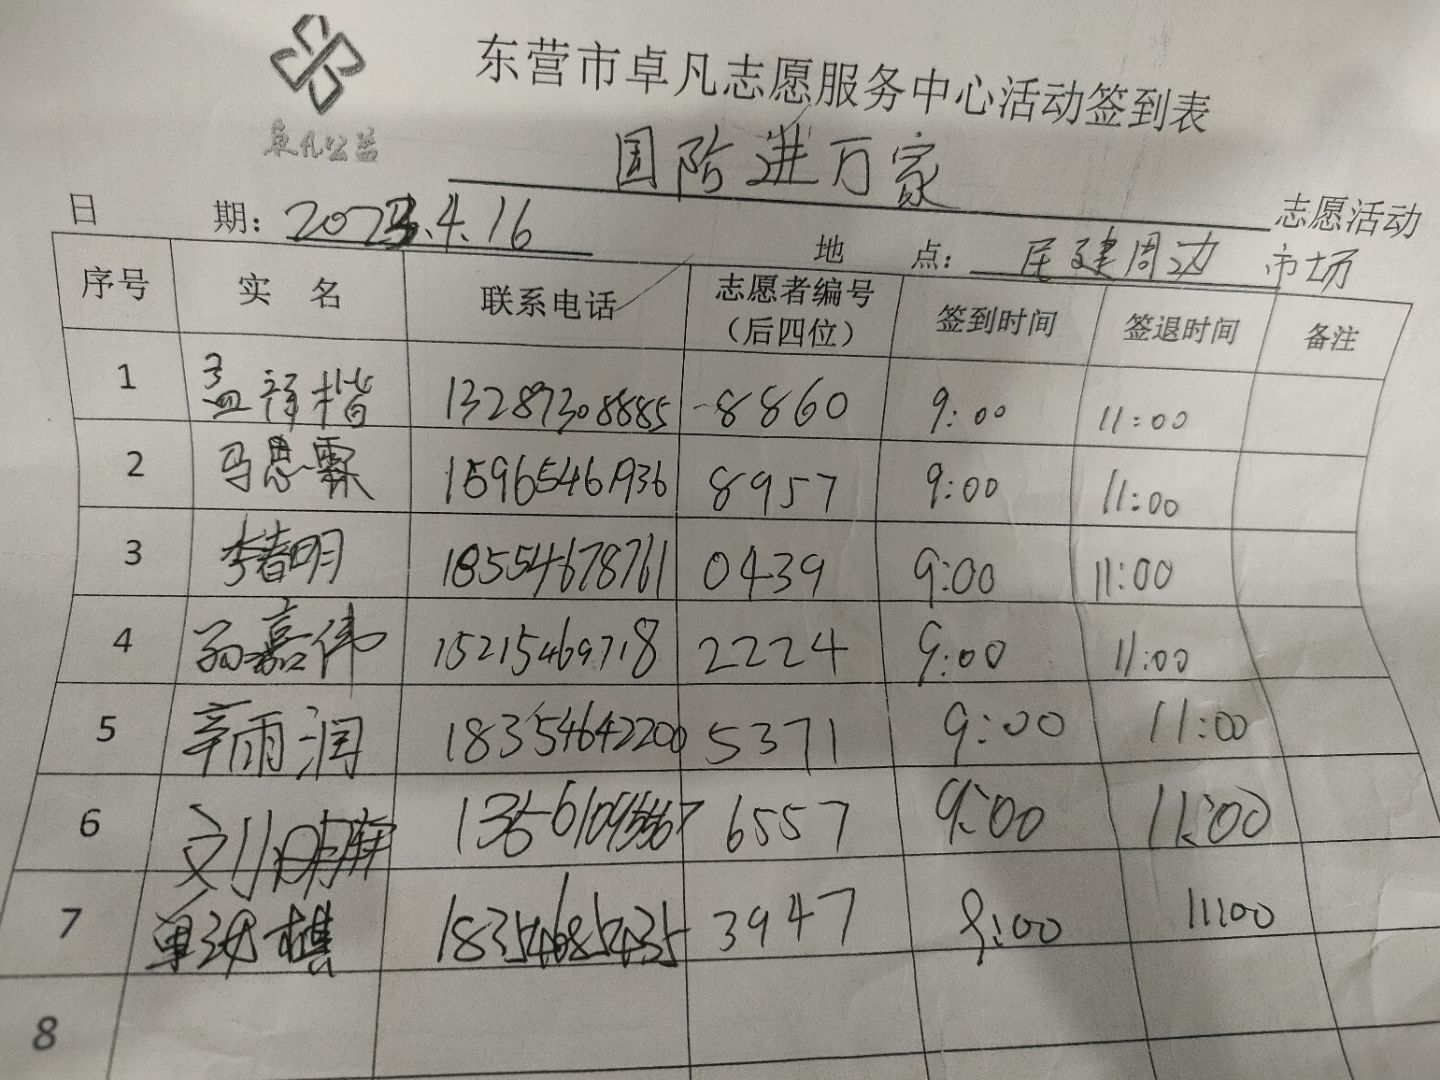 东营市卓凡志愿服务中心活动签到表
卓凡公益
国防进万家 志愿活动
日 期: 2023.4.16 地 点: 民建周边市场
序号 实 名 联系电话 志愿者编号(后四位) 签到时间 签退时间 备注
1 孟祥楷 13287308885 8860 9:00 11:00
2 马思霖 15965461936 8957 9:00 11:00
3 李春明 18554678761 0439 9:00 11:00
4 孙嘉伟 15215469718 2224 9:00 11:00
5 辛雨润 18354642200 5371 9:00 11:00
6 刘 6557 9:00 11:00
7 单 棋 3947 9:00 11:00
8